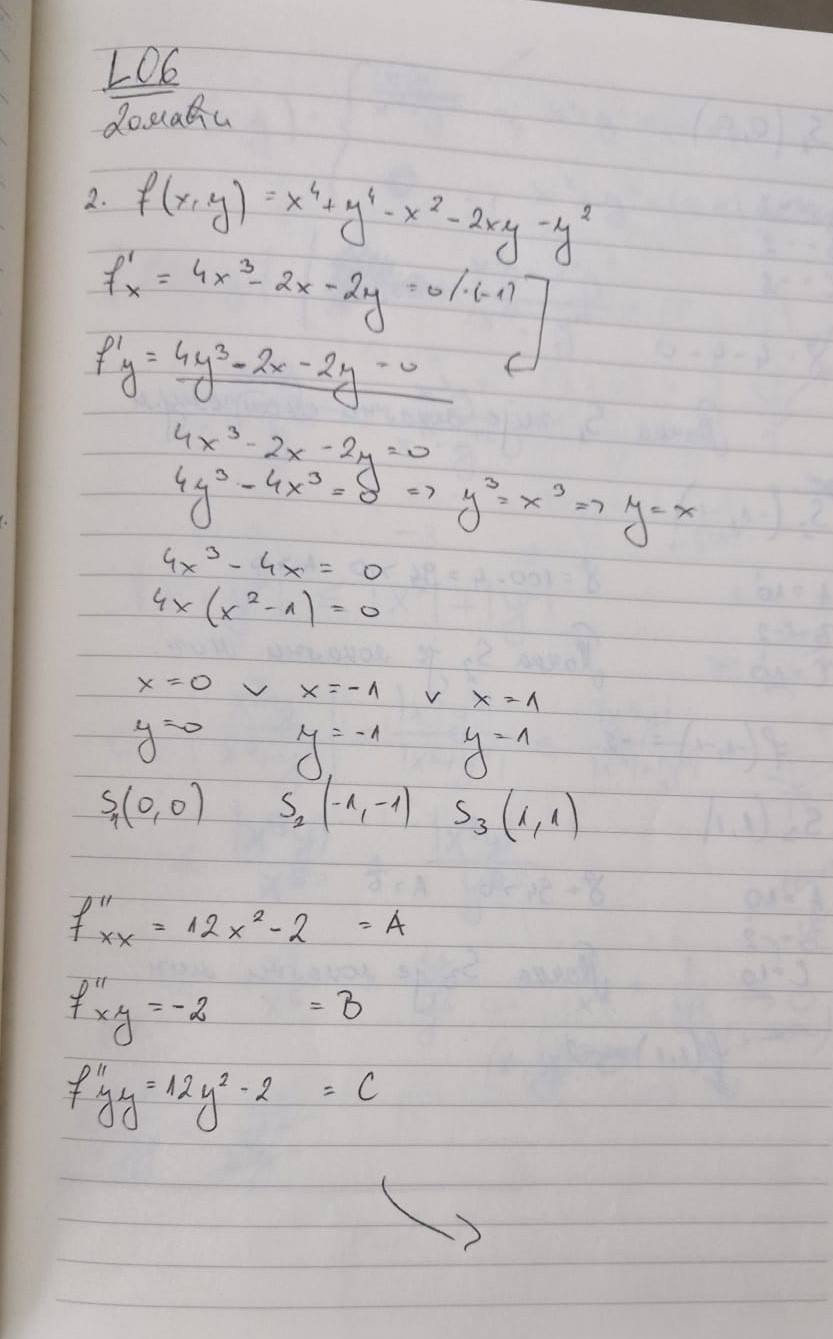 L06
Домаћи
2. f(x,y) = x⁴ + y⁴ - x² - 2xy - y²
f'x = 4x³ - 2x - 2y = 0 /·(-1)
f'y = 4y³ - 2x - 2y = 0
4x³ - 2x - 2y = 0
4y³ - 4x³ = 0 => y³ = x³ => y = x
4x³ - 4x = 0
4x(x² - 1) = 0
x = 0 ∨ x = -1 ∨ x = 1
y = 0 y = -1 y = 1
S₁(0,0) S₂(-1,-1) S₃(1,1)
f''xx = 12x² - 2 = A
f''xy = -2 = B
f''yy = 12y² - 2 = C